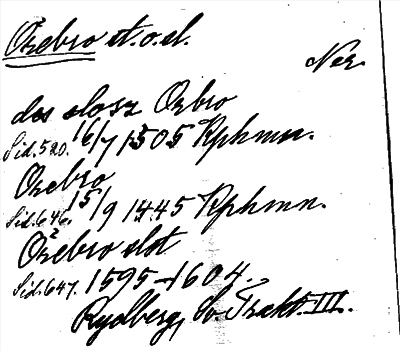 Örebro st. o. sl.
Ner.
des slosz Orbro
Sid. 520. 16/7 1505 Rphmn.
Orebro
Sid. 646. 15/9 1445 Rphmn.
Örebro slot
Sid. 647. 1595–1604.
Rydberg, Sv. Trakt. III.